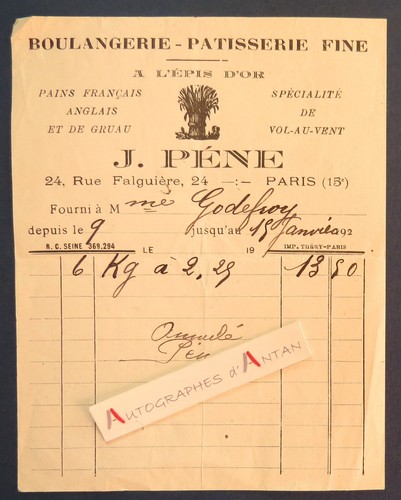 BOULANGERIE - PATISSERIE FINE
A L'ÉPIS D'OR
PAINS FRANÇAIS
ANGLAIS
ET DE GRUAU
SPÉCIALITÉ
DE
VOL-AU-VENT
J. PÉNE
24, Rue Falguière, 24 -:- PARIS (15e)
Fourni à Mme Godefroy
depuis le 9 jusqu'au 15 Janvier 92
R. C. SEINE 369.294 LE 19 IMP. THÉRY-PARIS
6 Kg à 2,25 13 50
AUTOGRAPHES d'ANTAN